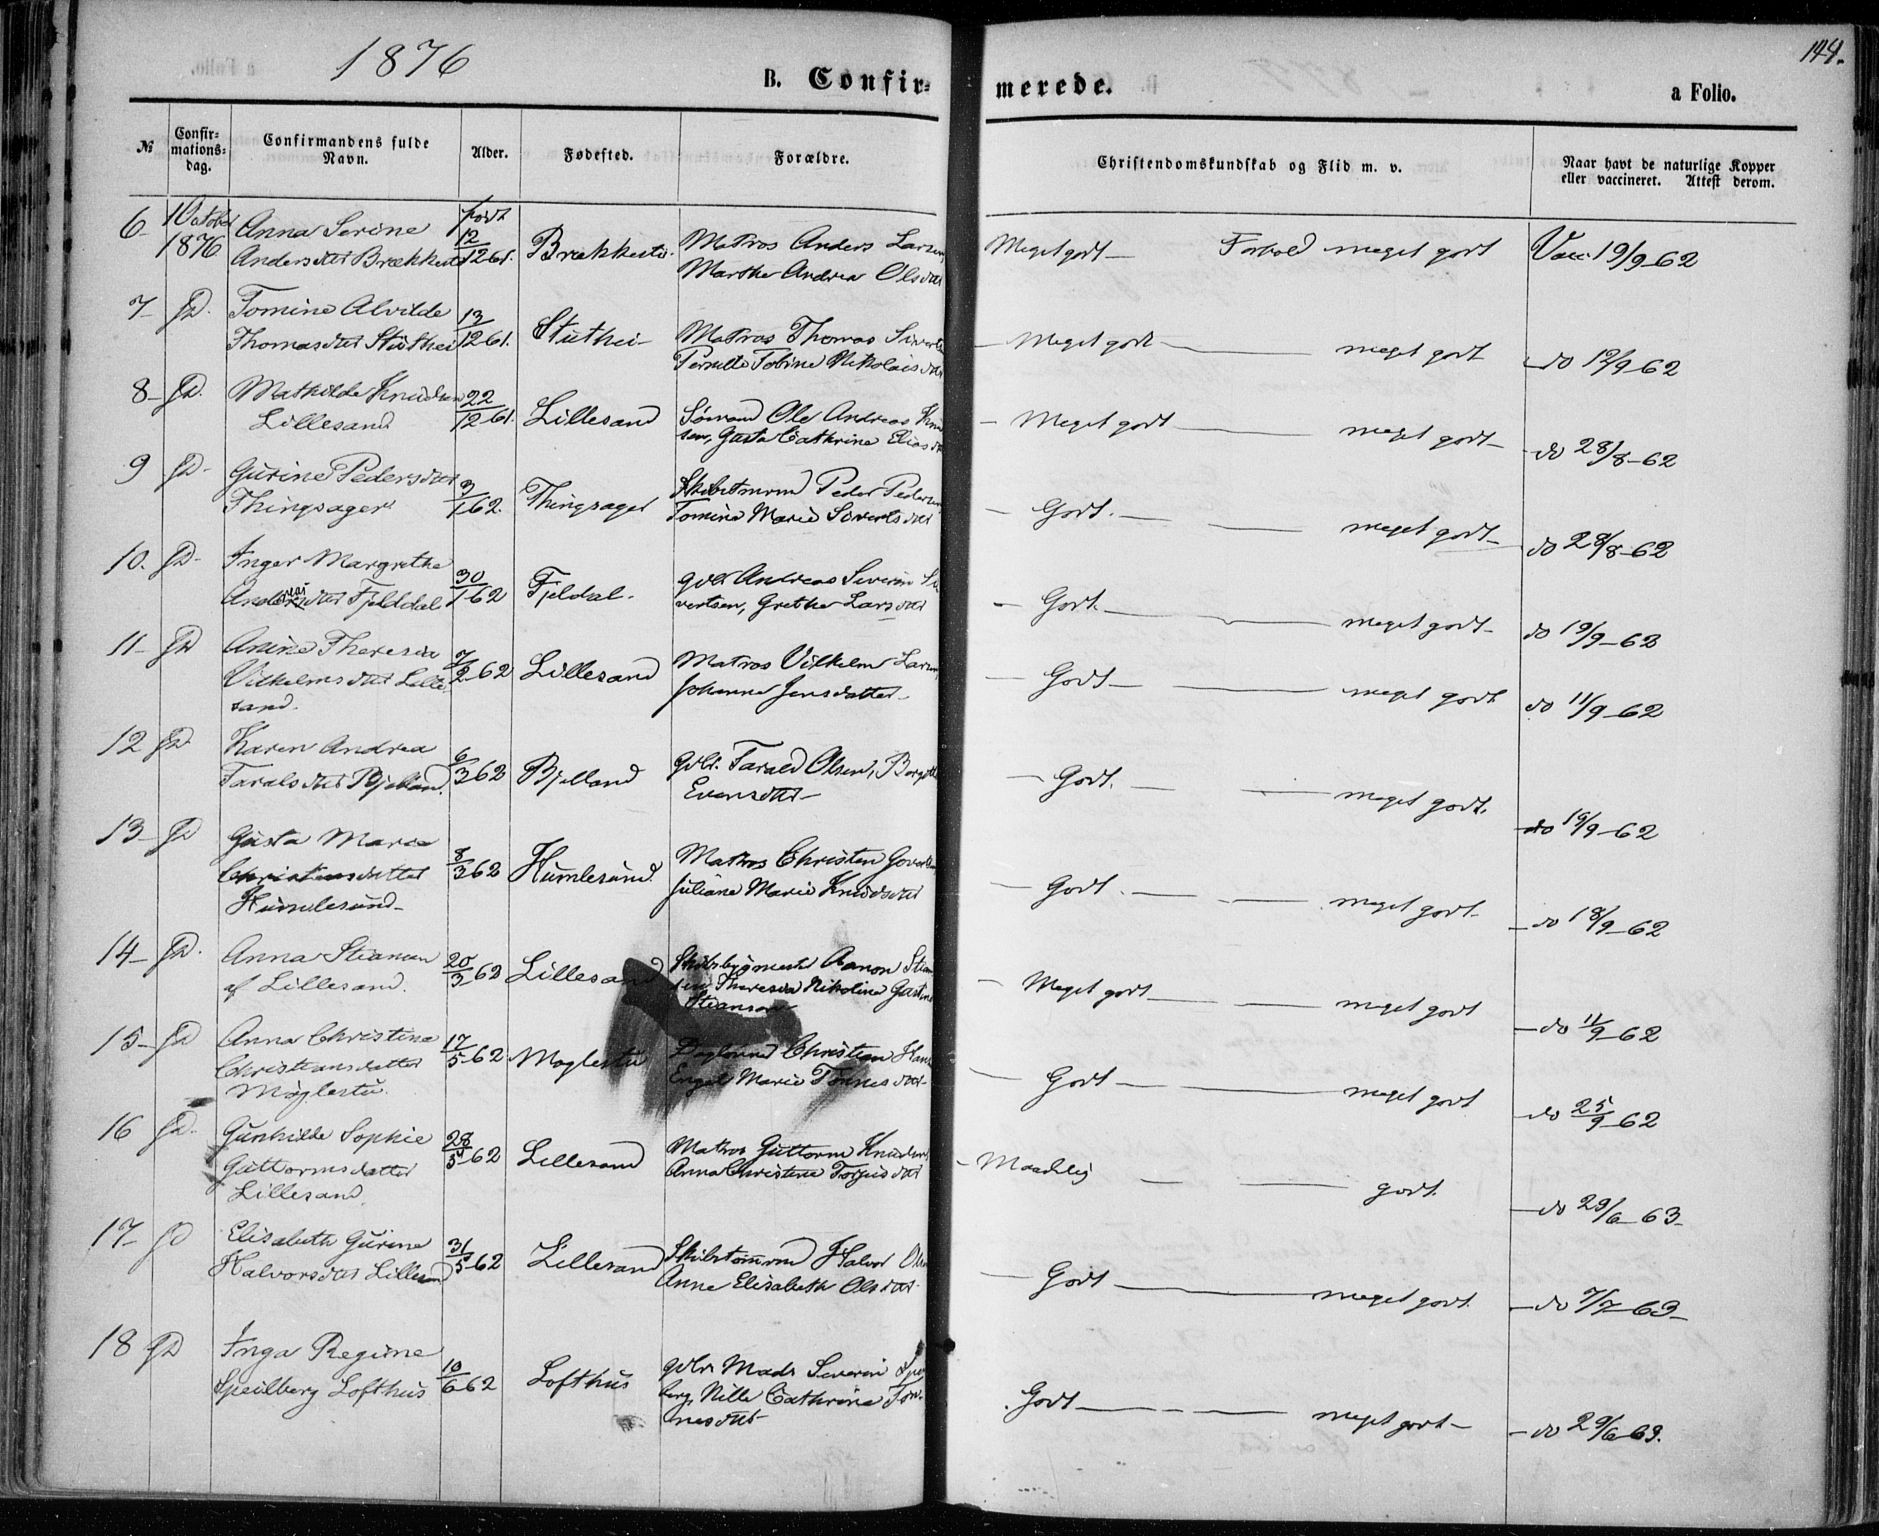 1876
144.
B. Confir-
merede.
a Folio.
№
Confir-
mations-
dag.
Confirmandens fulde
Navn.
Alder.
Fødested.
Forældre.
Christendomskundskab og Flid m. v.
Naar havt de naturlige Kopper
eller vaccineret. Attest derom.
6- 1 October Anna Serine født
1876 Andersdtr Brækkestø 12/12 61. Brækkestø. Matros Anders Larsen
Marthe Andrea Olsdtr
Meget godt — Forhold meget godt Vacc. 19/9-62
7- Id. Tomine Alvilde
Thomasdtr Stuthei 13/12 61. Stuthei- Matros Thomas
Pernille Tobine Nikolaisdtr
- Meget godt — meget godt - do 12/9-62
8- Id. Mathilde Knudsen
Lillesand 22/12 61. Lillesand Sømand Ole Andreas Knud
sen, Gusta Cathrine Eliasdtr
- Meget godt — meget godt - do 28/8-62
9 Id- Gurine Pedersdtr
Thingsager 3/1 62. Thingsager Peder Pedersen
Tomine Marie Siverts dtr
- Godt. — meget godt - do 28/8-62
10. Id- Inger Margrethe
Andreasdtr Fjelddal 30/1 62 Fjeldal. Andreas Severin Si
vertsen, Grethe Larsdtr
- Godt. — meget godt - do 19/9-62
11- Id Anine Theresia
Vilhelmsdtr Lille 7/2-62 Lillesand Matros Vilhelm Larsen
sand. Johanne Jensdatter-
- Godt — meget godt do 11/9-62
12 Id. Karen Andrea
Taralsdtr Bjelland. 6/3 62 Bjelland Tarald Olsen,
Evensdtr-
- Godt. — meget godt. - do 19/9-62
13- Id Gusta Marie
Christensdatter 8/3 62 Humlesund. Matros Christen
Humlesund- Juliane Marie Knudsdtr
- Godt. — meget godt. - do 18/9-62
14- Id. Anna Stiansen
af Lillesand. 20/3 62 Lillesand Aanon Stian
sen Theresia Nikoline
Stiansen
- Meget godt — meget godt - do 11/9-62
15- Id Anna Christine
Christiansdatter 17/5-62 Moglestu Christian Hans
Møglestu. Engel Marie Tønnesdtr-
- Godt — meget godt - do 25/9-62
16 Id. Gunhilde Sophie
Guttormsdatter 28/5-62 Lillesand Matros Guttorm Knudsen
Lillesand. Anna Christine Torjusdtr
- Maadelig — godt. - do 29/6-63-
17- Id Elisabeth Gurine
Halvorsdtr Lillesand 31/5-62 Lillesand Skibstømrmd Halvor Olsen
Anne Elisabeth Olsdtr
- Godt — meget godt. - do 7/7-63-
18 Id Inga Regine
Speilberg Lofthus 10/6 62 Lofthus Mads Severin Speil
berg, Nille Cathrine Tøn-
nesdtr-
Godt — meget godt - do 29/6-63.